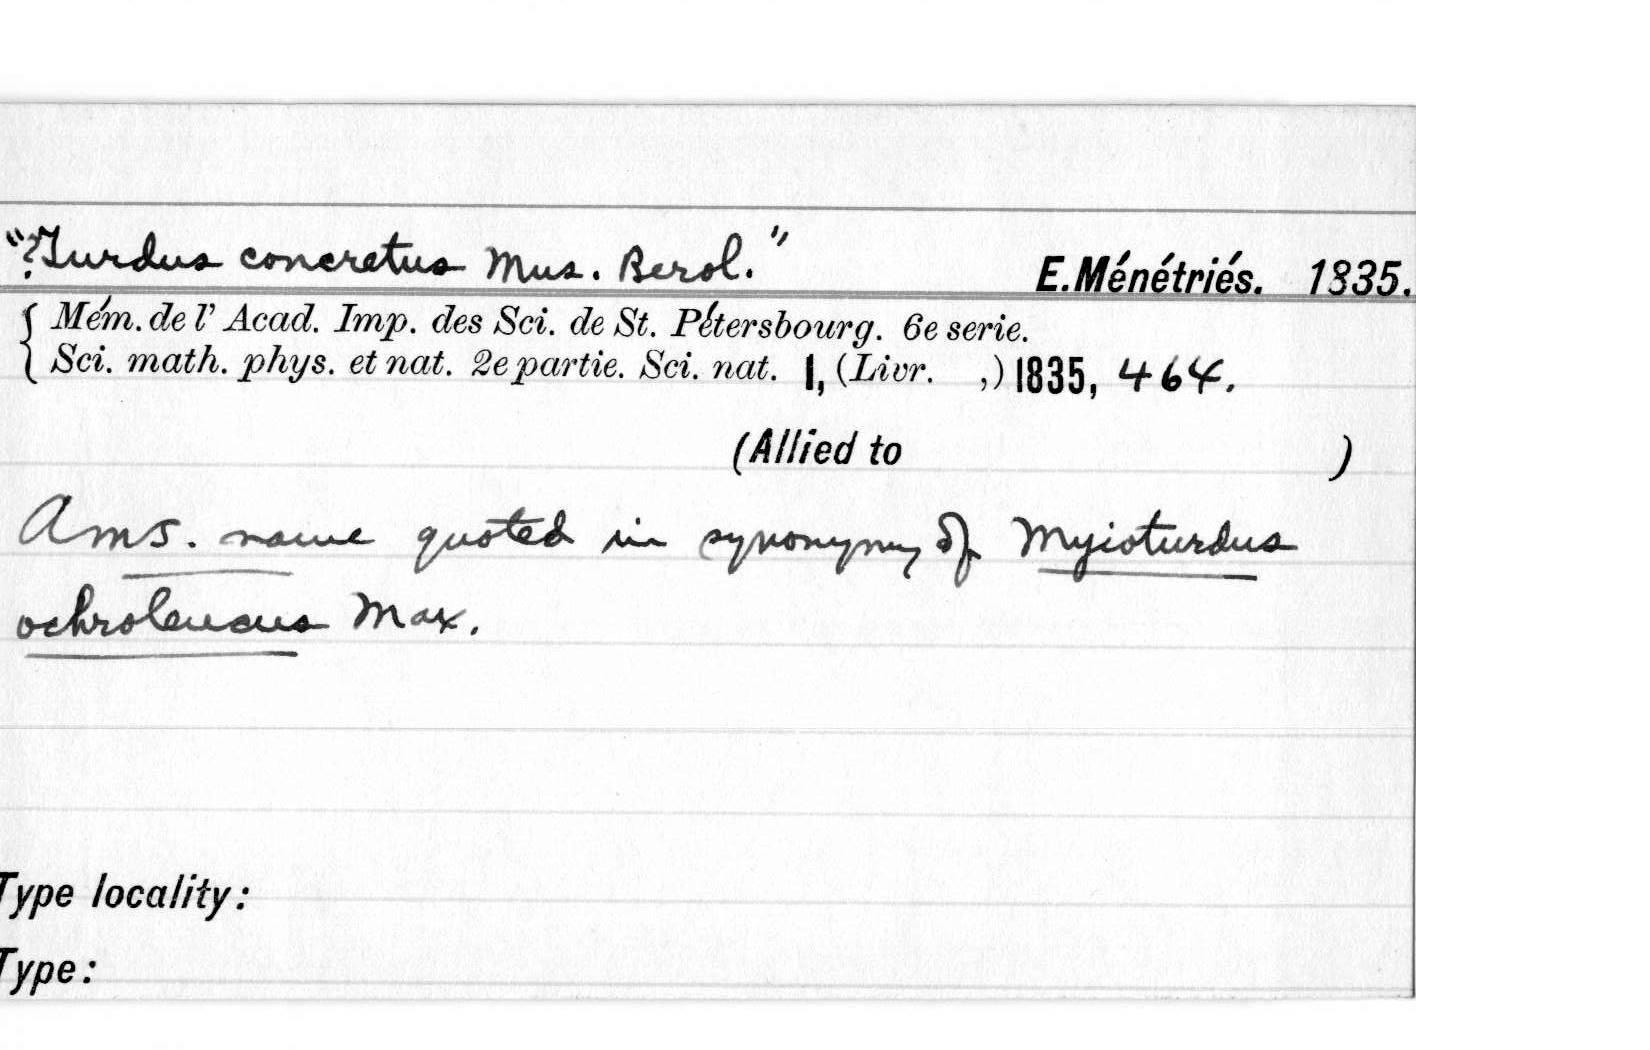 "?Turdus concretus Mus. Berol." E. Ménétriés. 1835.
Mém. de l' Acad. Imp. des Sci. de St. Pétersbourg. 6e serie.
Sci. math. phys. et nat. 2e partie. Sci. nat. 1, (Livr. ,) 1835, 464.
(Allied to )
A ms. name quoted in synonymy of Myioturdus
ochroleucus Max.
Type locality:
Type: